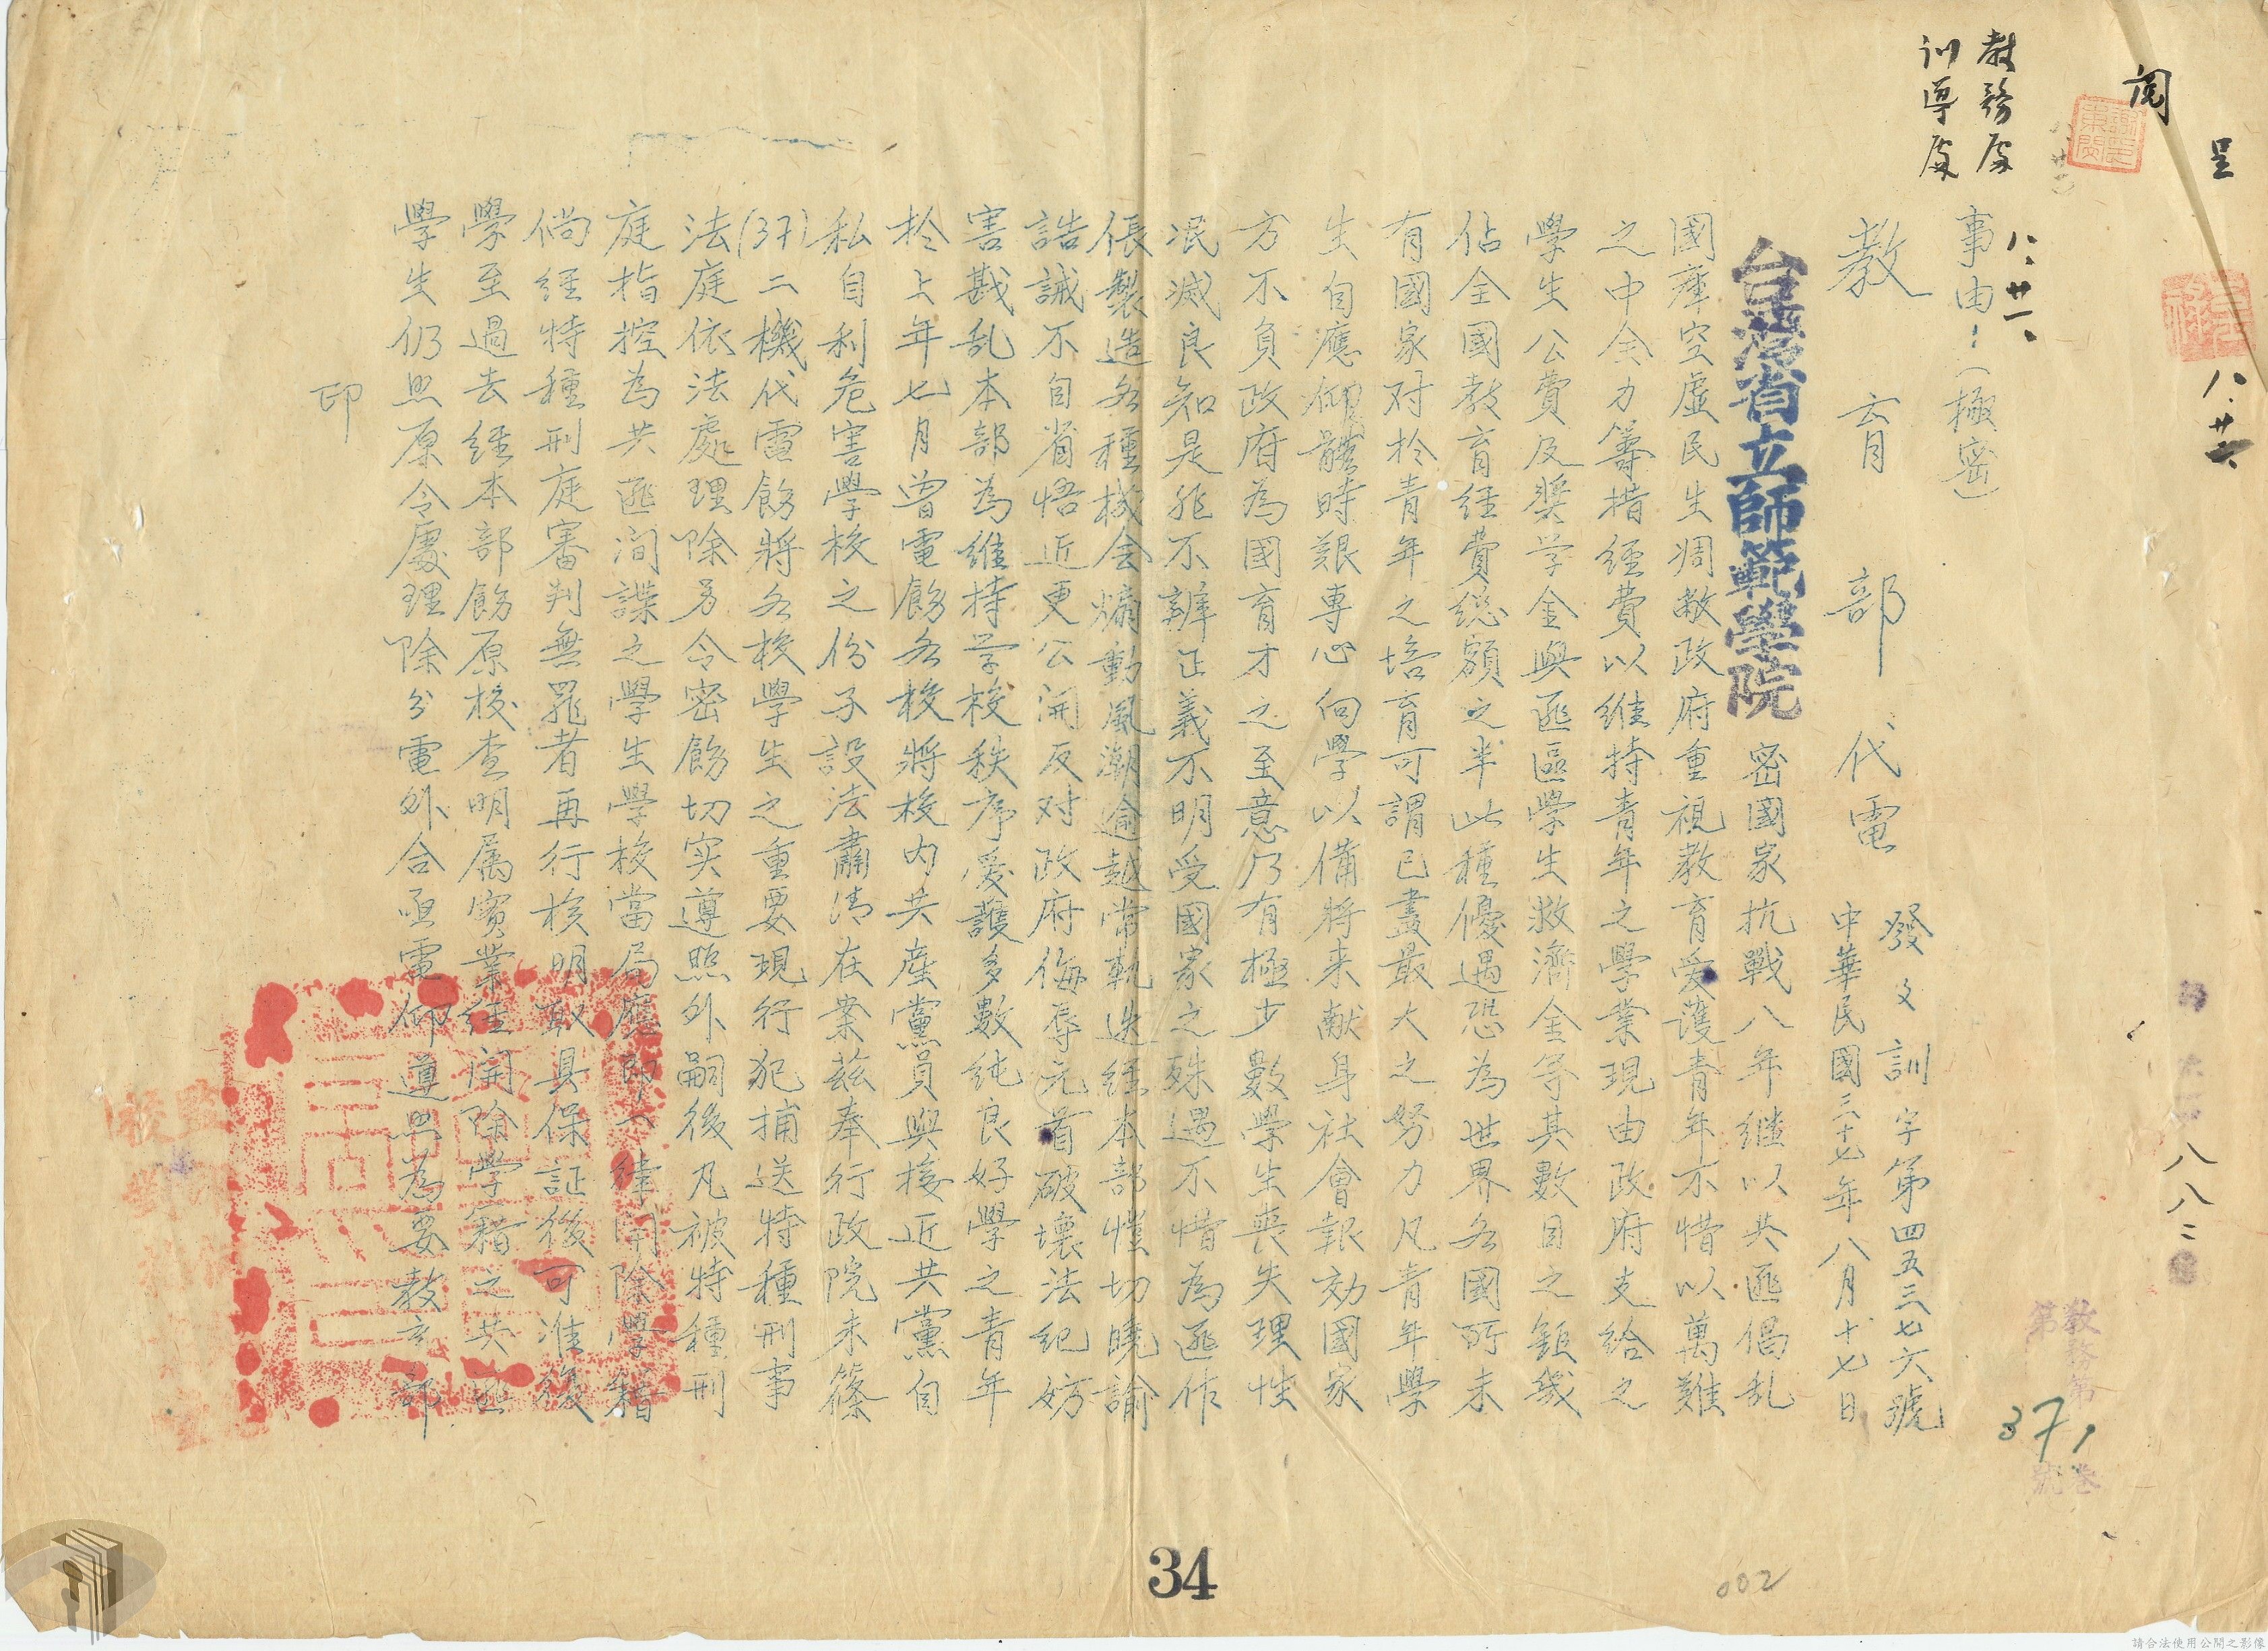 呈
閱
教務處
訓導處
八、廿一、
八、廿六
事由：（極密）
教育部代電
發文訓字第四五三七六號
中華民國三十七年八月十七日
台灣省立師範學院
密國家抗戰八年继以共匪倡乱
國庫空虛民生凋敝政府重視教育爱護青年不惜以萬難
之中全力筹措经費以维持青年之學業現由政府支给之
學生公費及奨学金與匪區學生救濟金等其數目之鉅幾
佔全國教育经費総額之半此種優遇恐為世界各國所未
有國家对於青年之培育可謂已盡最大之努力凡青年學
生自應仰體時艱專心向學以備將来献身社會報効國家
方不負政府為國育才之至意乃有極少數學生喪失理性
泯滅良知是非不辨正義不明受國家之殊遇不惜為匪作
倀製造各種机会煽動風潮逾越常軌迭经本部愷切曉諭
誥誡不自省悟近更公開反对政府侮辱元首破壞法纪妨
害戡乱本部為維持学校秩序愛護多數纯良好學之青年
於上年七月曾電飭各校將校内共產黨員與接近共黨自
私自利危害學校之份子設法肅清在案兹奉行政院未篠
(37)二機代電飭將各校學生之重要現行犯捕送特種刑事
法庭依法處理除另令密飭切实遵照外嗣後凡被特種刑
庭指控為共匪间諜之學生學校當局應即一律開除學籍
倘经特種刑庭審判無罪者再行核明取具保証後可准復
學至過去经本部飭原校查明属實業经開除学籍之共匪
學生仍照原令處理除分電外合亟電仰遵照為要教育部
印
八八二
教務第
第 卷
號
37,
34
002
請合法使用公開之影像